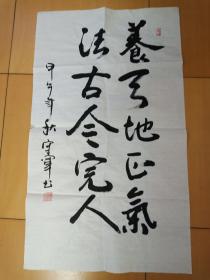 養天地正氣
法古今完人
甲午年秋宝军书